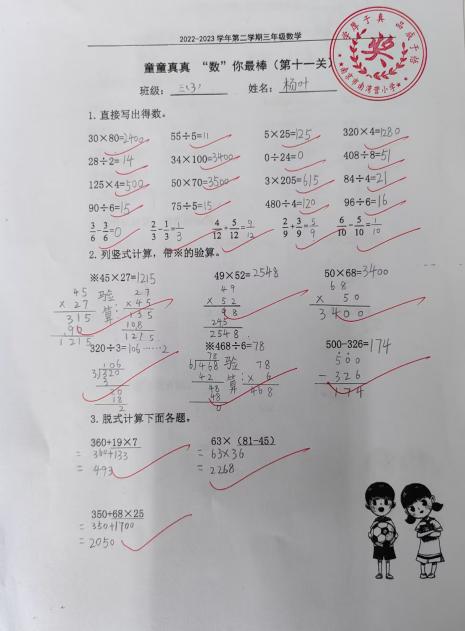 2022-2023学年第二学期三年级数学
童童真真 “数”你最棒（第十一关）
班级： 三(3) 姓名： 杨叶
奖
南京市南湾营小学
1. 直接写出得数。
30×80=2400 55÷5=11 5×25=125 320×4=1280
28÷2=14 34×100=3400 0÷24=0 408÷8=51
125×4=500 50×70=3500 3×205=615 84÷4=21
90÷6=15 75÷5=15 480÷4=120 96÷6=16
3/6-3/6=0 2/3-1/3=1/3 4/12+5/12=9/12 2/9+3/9=5/9 6/10-5/10=1/10
2. 列竖式计算，带※的验算。
※45×27=1215 49×52=2548 50×68=3400
45 验 27 49 68
×27 算: ×45 ×52 × 50
315 135 98 3400
90 108 245
1215 1275 2548
320÷3=106……2 ※468÷6=78 500-326=174
106 78 验 78 500
3/320 6/468 算: × 6 -326
3 42 468 174
20 48
18 48
2 0
3. 脱式计算下面各题。
360+19×7 63×（81-45）
=360+133 =63×36
=493 =2268
350+68×25
=350+1700
=2050